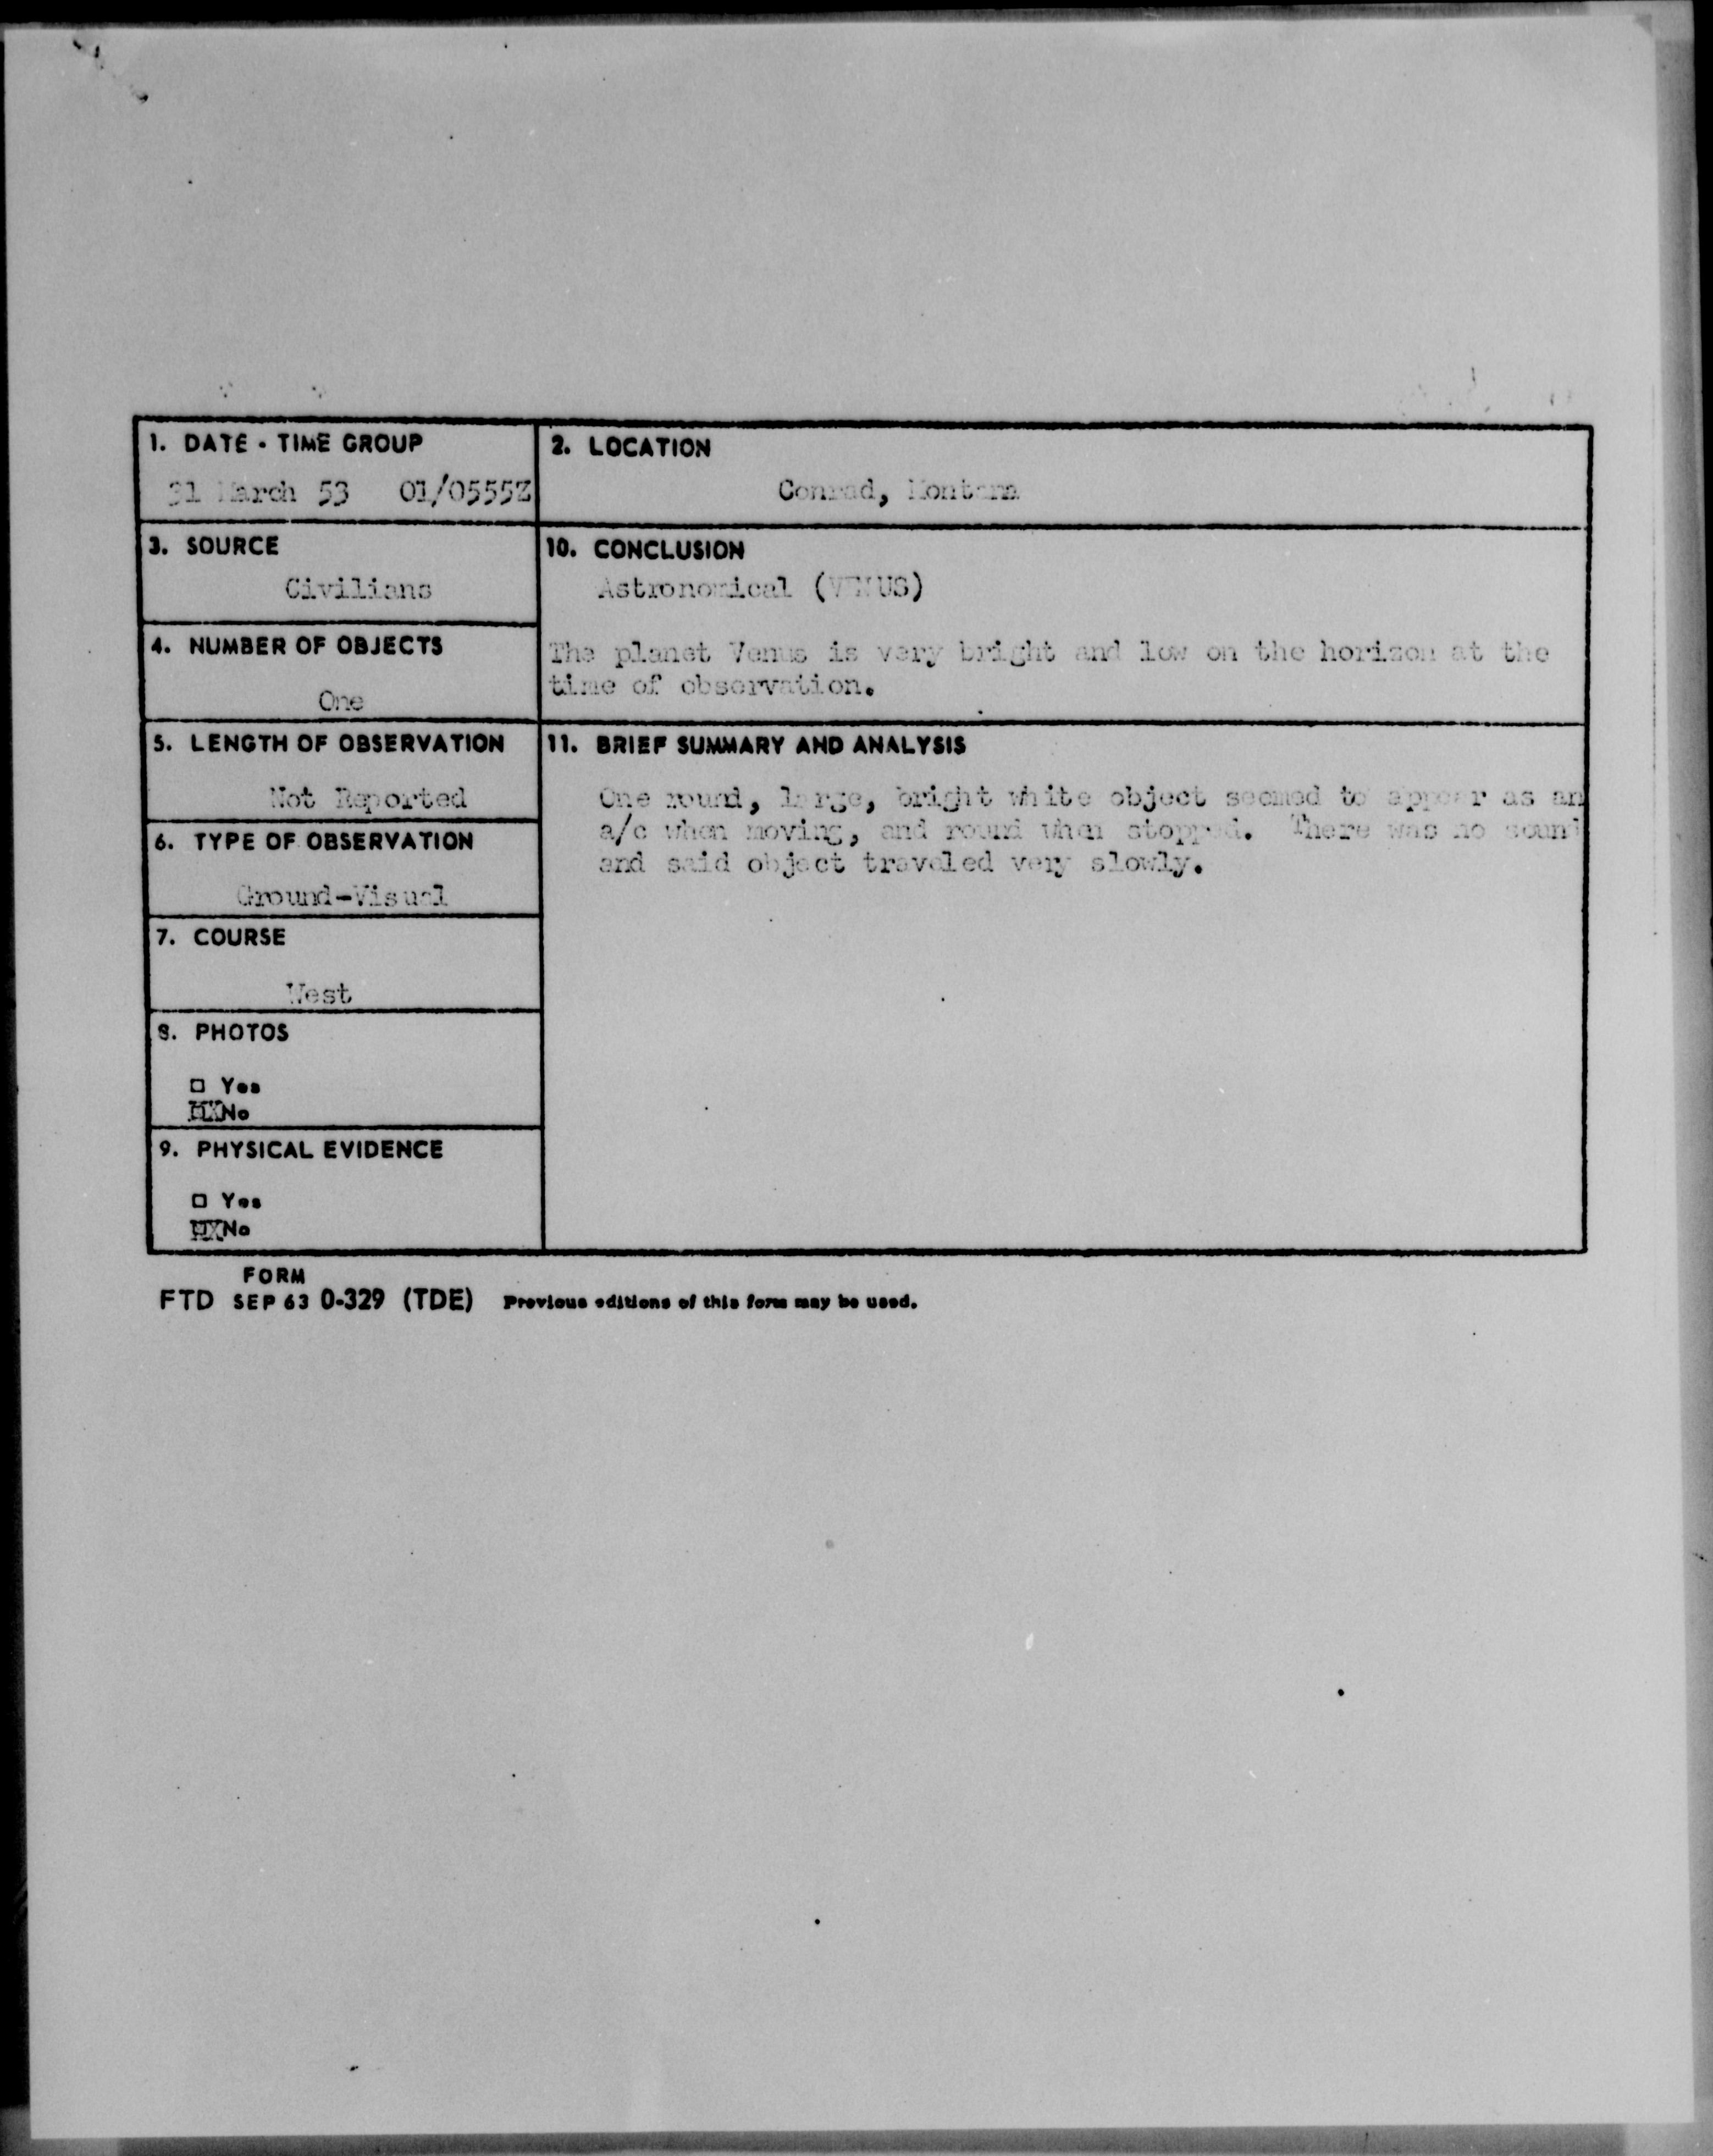 1. DATE - TIME GROUP
31 March 53 01/0555Z
2. LOCATION
Conrad, Montana
3. SOURCE
Civilians
10. CONCLUSION
Astronomical (VENUS)
The planet Venus is very bright and low on the horizon at the
time of observation.
4. NUMBER OF OBJECTS
One
5. LENGTH OF OBSERVATION
Not Reported
11. BRIEF SUMMARY AND ANALYSIS
One round, large, bright white object seemed to appear as an
a/c when moving, and round when stopped. There was no sound
and said object traveled very slowly.
6. TYPE OF OBSERVATION
Ground-Visual
7. COURSE
West
8. PHOTOS
□ Yes
XXNo
9. PHYSICAL EVIDENCE
□ Yes
XXNo
FORM
FTD SEP 63 0-329 (TDE) Previous editions of this form may be used.